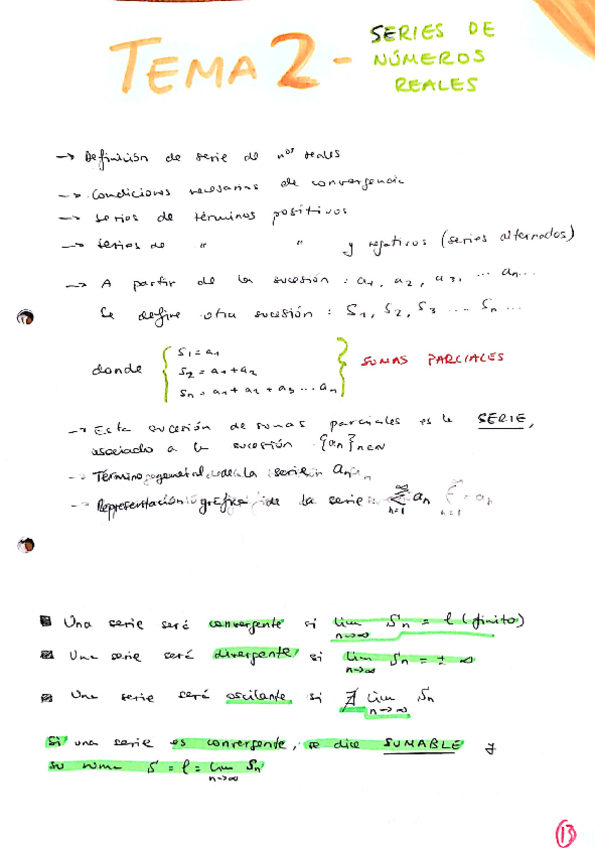 TEMA 2 - SERIES DE NÚMEROS REALES
→ Definición de serie de nos reales
→ Condiciones necesarias de convergencia
→ Series de términos positivos
→ Series de " " y negativos (series alternados)
→ A partir de la sucesión : a1, a2, a3, ... an...
Se define otra sucesión : S1, S2, S3 ... Sn ...
donde { S1 = a1
S2 = a1 + a2
Sn = a1 + a2 + a3 ... an } SUMAS PARCIALES
→ Esta sucesión de sumas parciales es la SERIE,
asociado a la sucesión {an}n∈N
→ Término general de la serie an
→ Representación gráfica de la serie ∞ Σ n=1 an
Una serie será convergente si lim n→∞ Sn = l (finito)
Una serie será divergente si lim n→∞ Sn = ± ∞
Una serie será oscilante si ∄ lim n→∞ Sn
Si una serie es convergente, se dice SUMABLE y
su suma S = l = lim n→∞ Sn
13